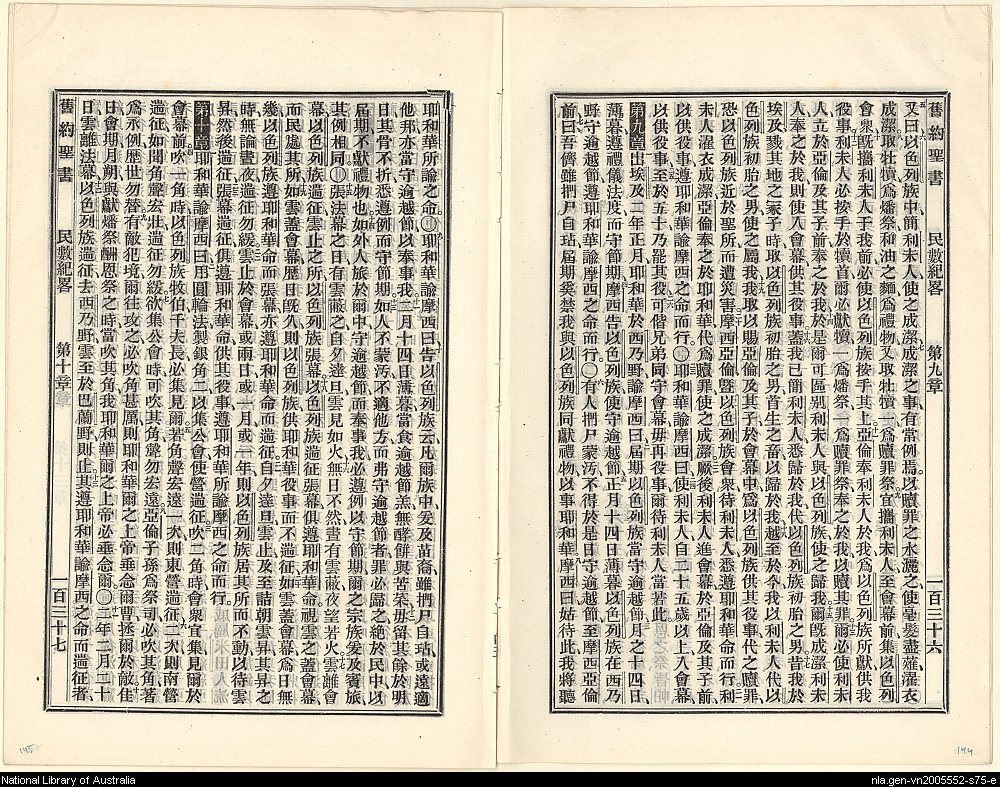 舊約聖書 民數紀畧 第九章 一百三十六
又曰以色列族中簡利未人使之成潔成潔之事有常例焉以贖罪之水灑之使毫髮盡薙濯衣
成潔取牡犢爲燔祭和油之麵爲禮物又取牡犢一爲贖罪祭宜攜利未人至會幕前集以色列
會衆旣攜利未人于我前必使以色列族按手其上亞倫奉利未人於我以爲以色列族所獻供我
役事利未人必按手於犢首爾必獻犢一爲燔祭一爲贖罪祭奉之於我以贖其罪爾必使利未
人立於亞倫及其子前奉之於我於是爾可區別利未人與以色列族使之歸我爾旣成潔利未
人奉之於我則使入會幕供其役事蓋我已簡利未人悉歸於我代以色列族初胎之男昔我於
埃及戮其地之冢子時取以色列族初胎之男首生之畜以歸於我越至於今我以利未人代以
色列族初胎之男使之屬我我取以賜亞倫及其子於會幕中爲以色列族供其役事代之贖罪
恐以色列族近於聖所而遭災害摩西亞倫曁以色列族會衆待利未人悉遵耶和華命而行利
未人濯衣成潔亞倫奉之於耶和華代爲贖罪使之成潔厥後利未人進會幕於亞倫及其子前
以供役事俱遵耶和華諭摩西之命而行○耶和華諭摩西曰使利未人自二十五歲以上入會幕
以供役事至於五十乃罷其役可偕兄弟同守會幕毋再役事爾待利未人當若此
第九章出埃及二年正月耶和華於西乃野諭摩西曰屆期以色列族當守逾越節月之十四日
薄暮遵禮儀法度而守節期摩西告以色列族使守逾越節正月十四日薄暮以色列族在西乃
野守逾越節遵耶和華諭摩西之命而行○有人捫尸蒙汚不得於是日守逾越節至摩西亞倫
前曰吾儕雖捫尸自玷屆期奚禁我與以色列族同獻禮物以事耶和華摩西曰姑待此我將聽
144
耶和華所諭之命○耶和華諭摩西曰告以色列族云凡爾族中爰及苗裔雖捫尸自玷或遠適
他邦亦當守逾越節以奉事我二月十四日薄暮當食逾越節羔無酵餅與苦菜毋留其餘於明
日其骨不折悉遵例而守節期如人不蒙汚不適他方而弗守逾越節者罪必歸之絕於民中以
屆期不獻禮物也如外人旅於爾中守逾越節而奉事我必遵例以守節期爾之宗族爰及賓旅
其例相同○張法幕之日有雲蔽之自夕達旦雲見如火無日不然晝有雲蔽夜望若火雲離會
幕以色列族遄征雲止之所以色列族張幕以色列族遄征張幕俱遵耶和華命視雲之蓋會幕
而民處其所如雲蓋會幕歷日旣久則以色列族供耶和華役事而不遄征如雲蓋會幕爲日無
幾以色列族遵耶和華命而張幕亦遵耶和華命而遄征自夕達旦雲止及至詰朝雲昇其昇之
時無論晝夜遄征勿緩雲止於會幕或兩日或一月或一年則以色列族居其所而不動以待雲
昇然後遄征張幕遄征俱遵耶和華命供其役事遵耶和華所諭摩西之命而行
第十章耶和華諭摩西曰用圓輪法製銀角二以集公會使營遄征吹二角時會衆宜集見爾於
會幕前吹一角時以色列族牧伯千夫長必集見爾若角聲宏遠一次則東營遄征二次則南營
遄征如聞角聲宏壯遄征勿緩欲集公會時可吹其角聲勿宏遠亞倫子孫爲祭司必吹其角著
爲永例歷世勿替有敵犯境爾往攻之必吹角甚厲則耶和華爾之上帝垂念爾曹拯爾於敵佳
日會期月朔與獻燔祭酬恩祭之時當吹其角我耶和華爾之上帝必垂念爾○二年二月二十
日雲離法幕以色列族遄征去西乃野雲至於巴蘭野則止其遵耶和華諭摩西之命而遄征者
舊約聖書 民數紀畧 第十章 一百三十七
145
National Library of Australia
nla.gen-vn2005552-s75-e